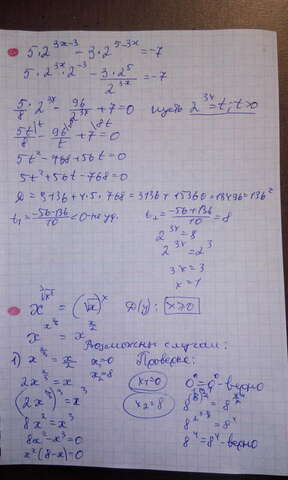 5·2^{3x-3} - 3·2^{5-3x} = -7
5·2^{3x}·2^{-3} - \frac{3·2^5}{2^{3x}} = -7
\frac{5}{8}·2^{3x} - \frac{96}{2^{3x}} + 7 = 0 Пусть 2^{3x} = t; t>0
\frac{5t}{8} - \frac{96}{t} + 7 = 0
5t² - 768 + 56t = 0
5t² + 56t - 768 = 0
D = 3136 + 4·5·768 = 3136 + 15360 = 18496 = 136²
t₁ = \frac{-56-136}{10} < 0 - не уд. t₂ = \frac{-56+136}{10} = 8
2^{3x} = 8
2^{3x} = 2³
3x = 3
x = 1
x^{\sqrt[3]{x²}} = (\sqrt{x})^x D(y): x≥0
x^{x^{2/3}} = x^{\frac{x}{2}}
Возможны случаи:
1) x^{2/3} = \frac{x}{2} x₁=0 Проверка:
2x^{2/3} = x x₂=8 x₁=0 0⁰=0⁰ - верно
(2x^{2/3})³ = x³ x₂=8
8x² = x³
8x² - x³ = 0 8⁴ = 8⁴ - верно
x²(8-x) = 0